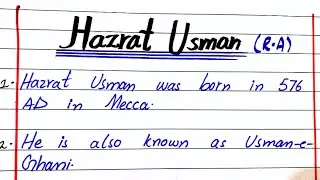 Hazrat Usman (R.A)
1. Hazrat Usman was born in 576
AD in Mecca.
2. He is also known as Usman-e-
Ghani.